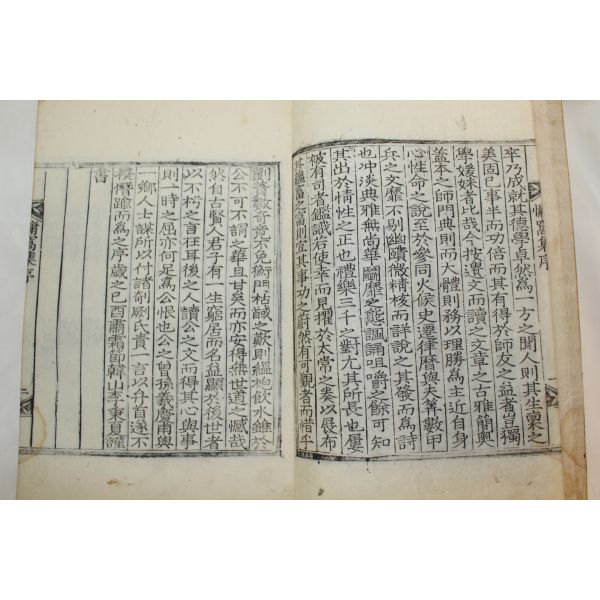 率乃成就其德學卓然爲一方之聞人則其生稟之
美固已事半而功倍而其有得於師友之益者豈獨
學媛姝者比哉今按遺文而讀之文章之古雅簡奧
盖本之師門典則而大體則務以理勝爲主近自身
心性命之說至於參同火候史遷律曆與夫筭數甲
兵之文靡不剔幽賾微精核而詳說之其發而爲詩
也冲淡典雅無尚華鬪靡之態諷誦咀嚼之餘可知
其出於情性之正也禮樂三千之對尤其所長也屢
被有司者鑑識若使幸而見擢於太常之矣以展布
其縕畜之富則宜其事功之蔚然有可觀者而惜乎
劉蕡數奇竟不免衡門枯馘之歎則縕袍飮水雖於
公不可不謂之華且甘矣而亦安得無世道之憾哉
然自古賢人君子有一生窮居而名益顯於後世者
以不朽之言在耳後之人讀公之文則得其心與事
則一時之屈亦何足爲公恨也公之曾孫羲慶甫與
一鄉人士謀所以付諸剞劂氏責一言以弁首遂不
揆僭踰而爲之序歲之己酉肅霜節韓山李秉夏謹
書
窩集序